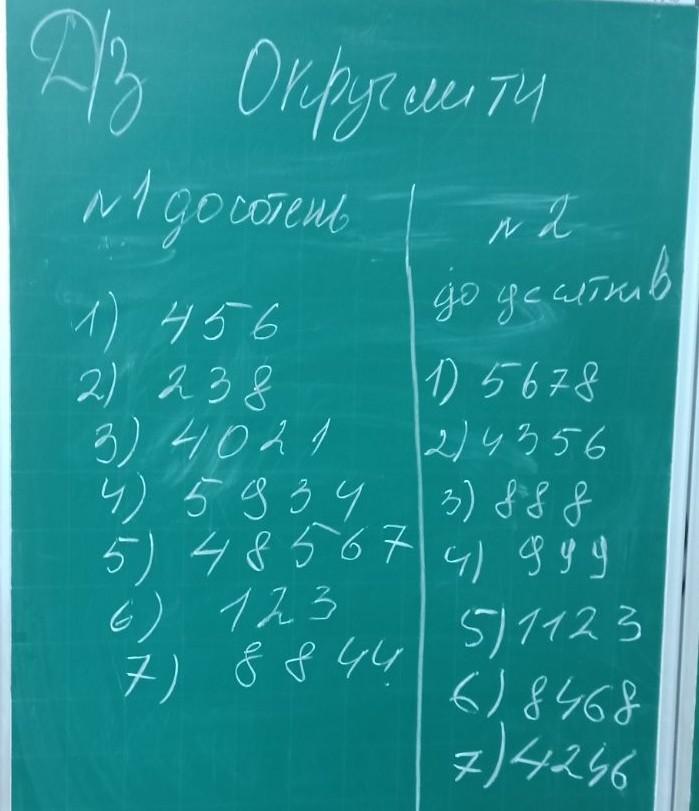 Д/з Округлити
№1 до сотень
1) 456
2) 238
3) 4021
4) 5934
5) 48567
6) 123
7) 8844
№2
до десятків
1) 5678
2) 4356
3) 888
4) 999
5) 1123
6) 8468
7) 4246